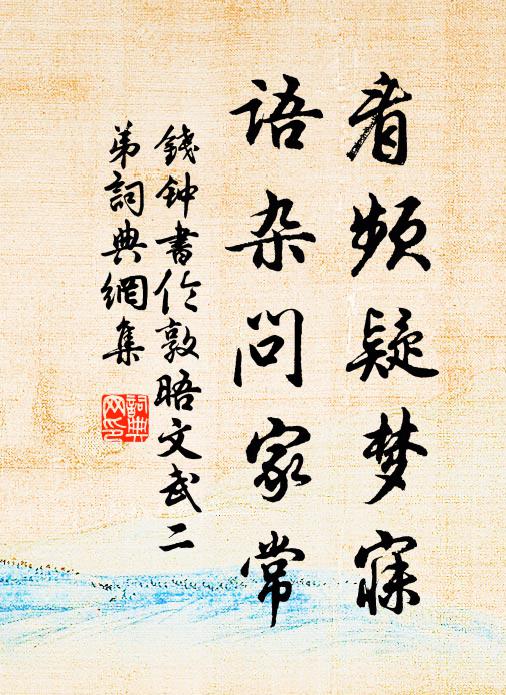 看频疑梦寐
语杂问家常
錢钟書伦敦晤文武二
弟詞典網集
詞典
网印